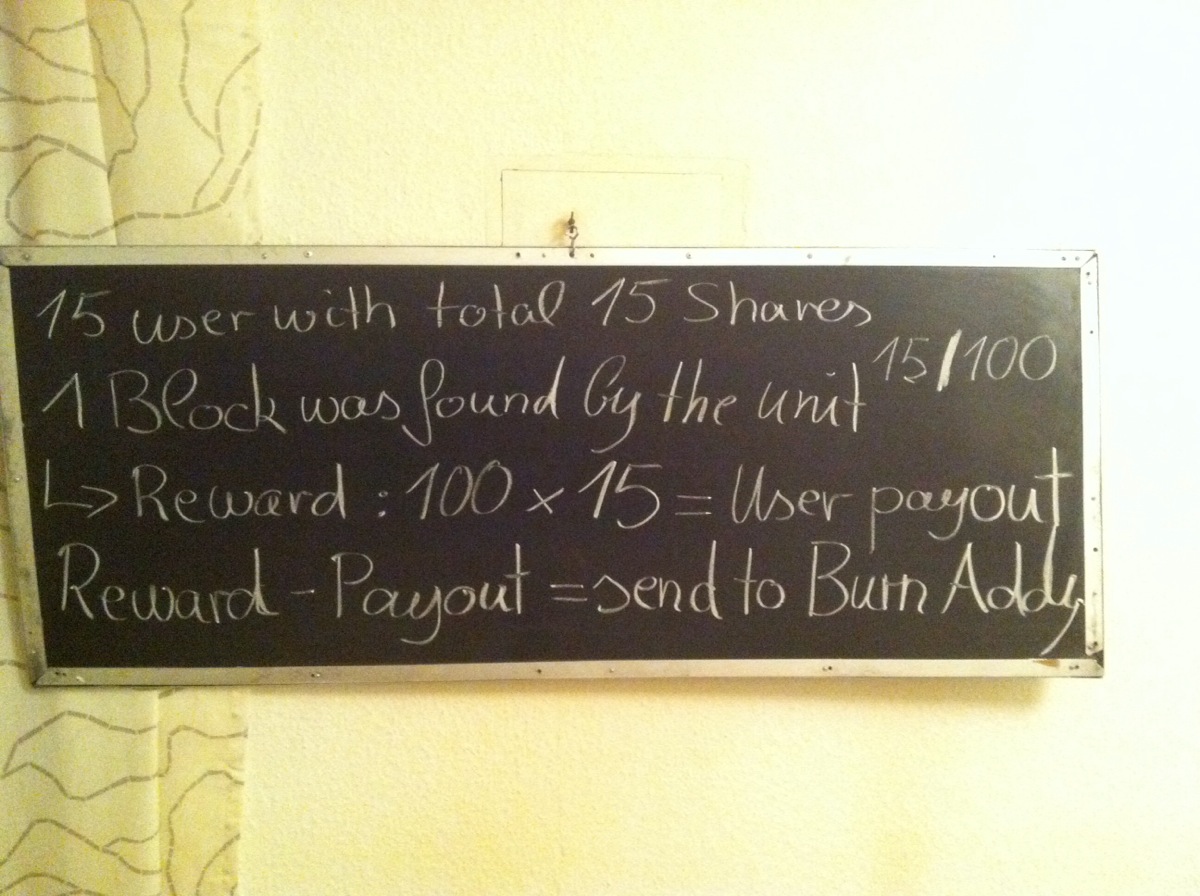 15 user with total 15 Shares
15/100
1 Block was found by the unit
↳ Reward : 100 × 15 = User payout
Reward - Payout = send to Burn Addy